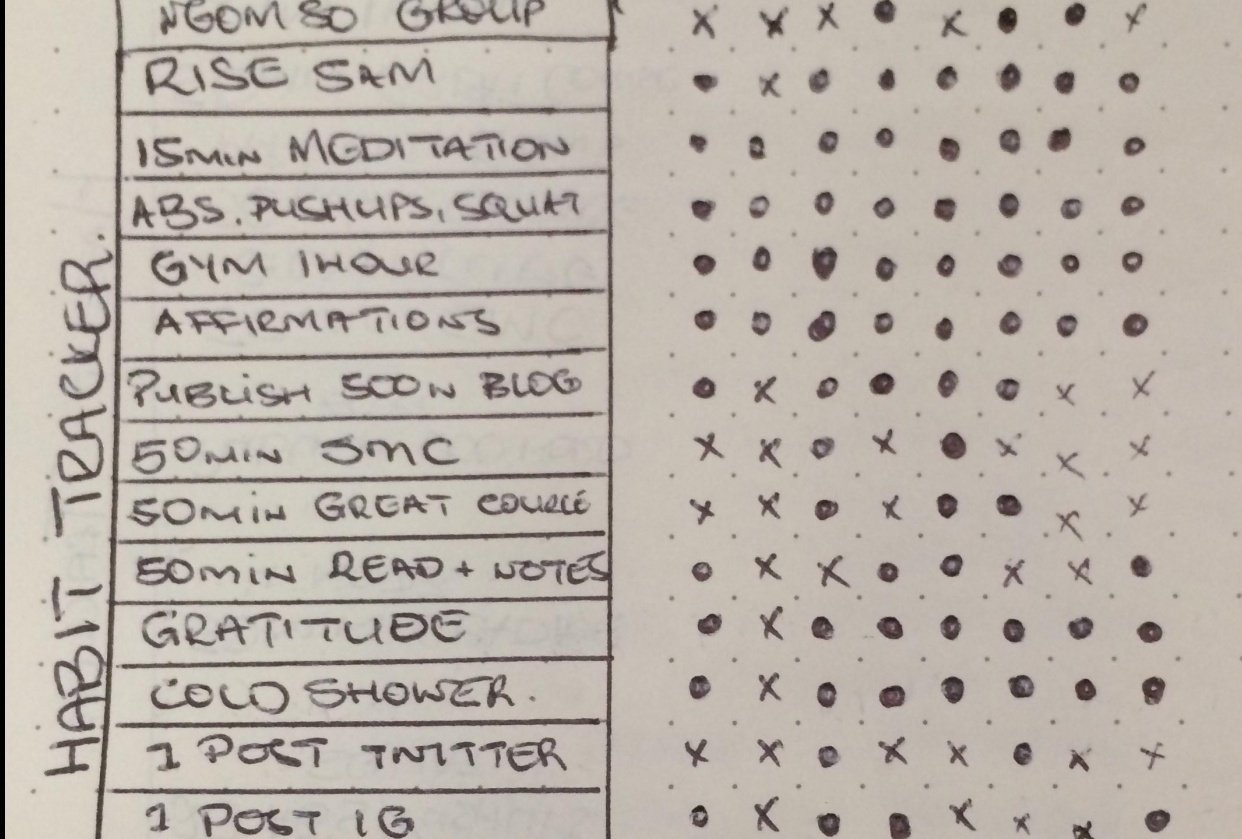 HABIT TRACKER.
NGOMSO GROUP x x x ● x ● ● x
RISE 5AM ● x ● ● ● ● ● ●
15MIN MEDITATION ● ● ● ● ● ● ● ●
ABS. PUSHUPS, SQUAT ● ● ● ● ● ● ● ●
GYM 1HOUR ● ● ● ● ● ● ● ●
AFFIRMATIONS ● ● ● ● ● ● ● ●
PUBLISH 500W BLOG ● x ● ● ● ● x x
50MIN SMC x x ● x ● x x x
50MIN GREAT COURCE x x ● x ● ● x x
50MIN READ + NOTES ● x x ● ● x x ●
GRATITUDE ● x ● ● ● ● ● ●
COLD SHOWER. ● x ● ● ● ● ● ●
1 POST TWITTER x x ● x x ● x x
1 POST IG ● x ● ● x x x ●